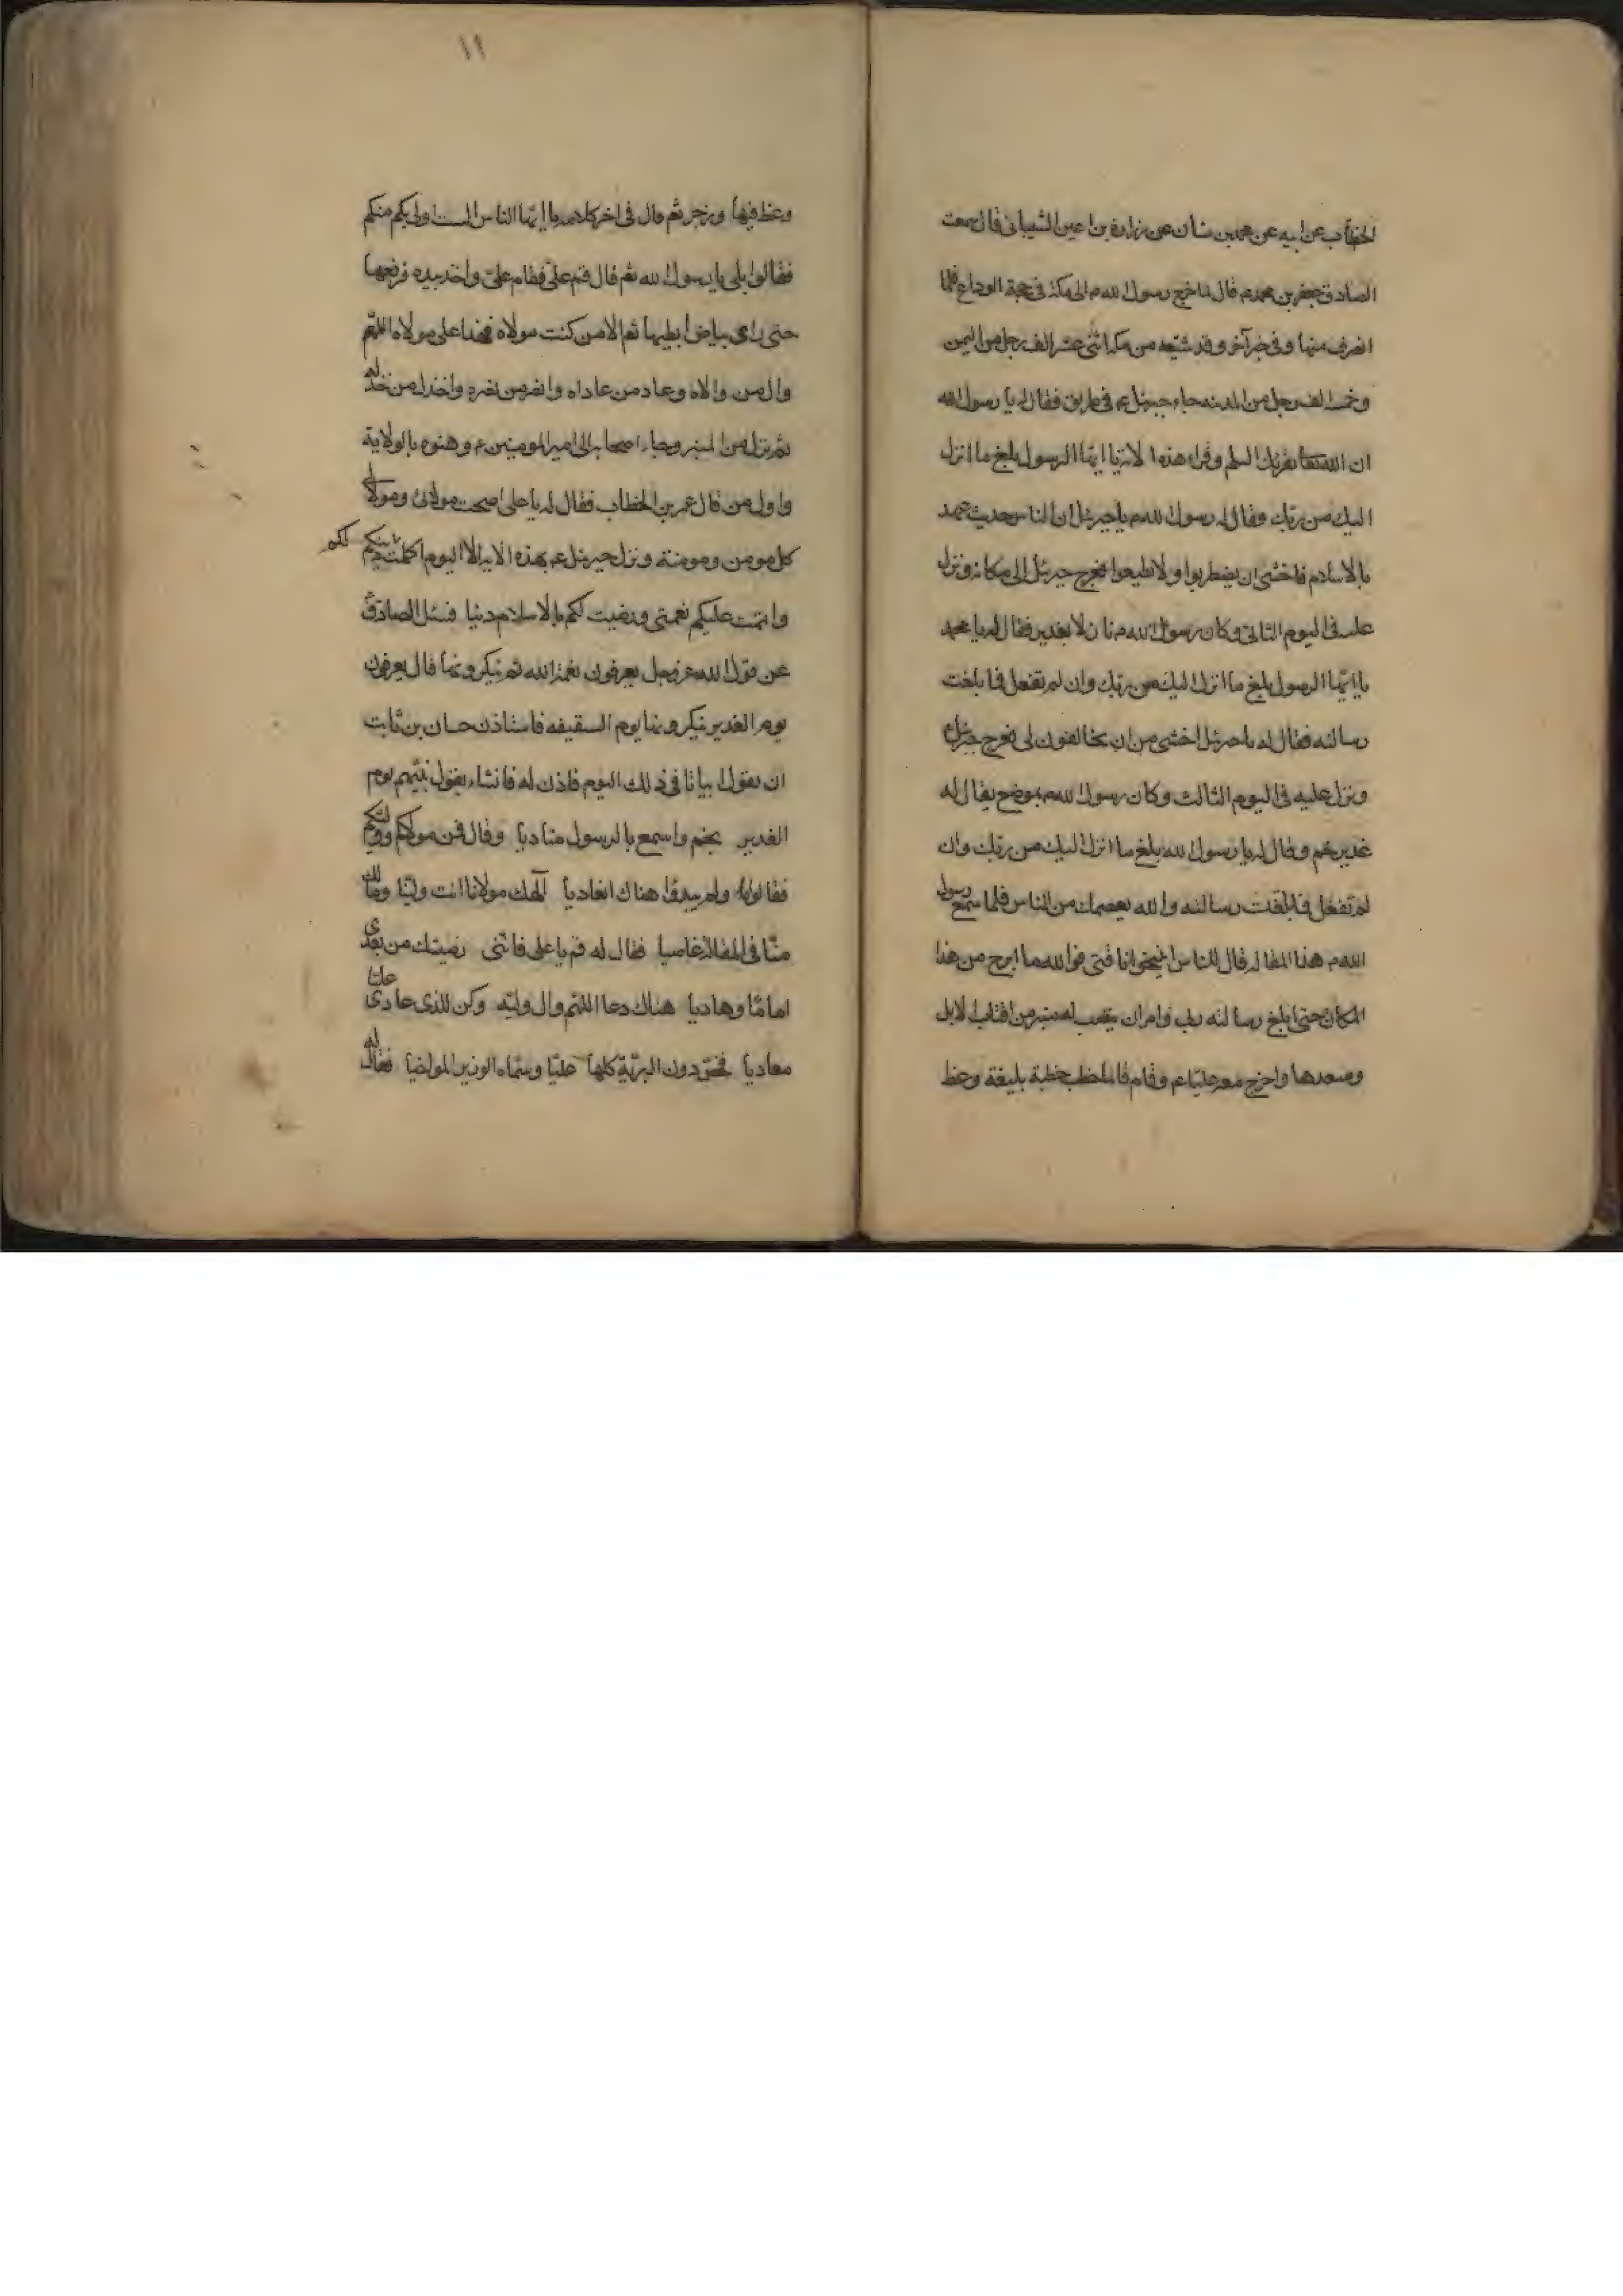 الخطاب عن ابيه عن محمد بن سنان عن زرارة بن اعين الشيبانى قال سمعت
الصادق جعفر بن محمدم قال لما خرج رسول الله م الى مكة فى حجة الوداع فلما
انصرف منها وفى خبر آخر وقد شيعه من مكة اثنى عشر الف رجل من اليمن
وخمسة الف رجل من المدينه جاء جبرئيل ع فى طريق فقال له يا رسول الله
ان الله تعا يقرئك السلم وقراء هذه الاية يا ايها الرسول بلغ ما انزل
اليك من ربك وقال له رسول الله م يا جبرئيل ان الناس حديث عهد
بالاسلام فاخشى ان يضطربوا ولا يطيعوا فعرج جبرئيل الى مكانه ونزل
عليه فى اليوم الثانى وكان رسول الله م نازلا بغدير فقال له يا محمد
يا ايها الرسول بلغ ما انزل اليك من ربك وان لم تفعل فما بلغت
رسالته فقال له يا جبرئيل اخشى من ان يخالفون لى فعرج جبرئيل
ونزل عليه فى اليوم الثالث وكان رسول الله م بموضع يقال له
غدير خم وقال له يا رسول الله بلغ ما انزل اليك من ربك وان
لم تفعل فما بلغت رسالته والله يعصمك من الناس فلما سمع رسول
الله م هذا المقاله قال للناس انيخوا ناقتى فوالله ما ابرح من هذا
المكان حتى ابلغ رسالة ربى وامر ان ينصب له منبر من اقتاب الابل
وصعدها واخرج معه عليا ع وقام قائما خطب خطبة بليغة وعظ
١١
وعظ فيها وزجر ثم قال فى اخر كلامه يا ايها الناس الست اولى بكم منكم
فقالوا بلى يا رسول الله ثم قال قم على فقام على واخذ بيده فرفعها
حتى راى بياض ابطيهما ثم الا من كنت مولاه فهذا على مولاه اللهم
وال من والاه وعاد من عاداه وانصر من نصره واخذل من خذله
ثم نزل من المنبر وجاء اصحابه الى امير المومنين ع وهنوه بالولاية
واول من قال عمر بن الخطاب فقال له يا على اصبحت مولائ ومولا
كل مومن ومومنة ونزل جبرئيل ع بهذه الايه الا اليوم اكملت لكم دينكم
واتممت عليكم نعمتى ورضيت لكم بالاسلام دينا فسئل الصادق
عن قول الله عز وجل يعرفون نعمة الله ثم ينكرونها قال يعرفون
يوم الغدير ينكرونها يوم السقيفه فاستاذن حسان بن ثابت
ان يقول ابياتا فى ذلك اليوم فاذن له فانشاء يقول نبيهم يوم
الغدير بخم واسمع بالرسول مناديا وقال فمن مولكم ووليكم
فقالوا ولم يبدوا هناك التعاديا الهك مولانا انت ولينا ومالك
منا فى المقالة عاصيا فقال له قم يا على فانى رضيتك من بعدى
اماما وهاديا هناك دعا اللهم وال وليه وكن للذى عادى عليا
معاديا فخص دون البرية كلها عليا وسماه الوزير المواخيا فقال له